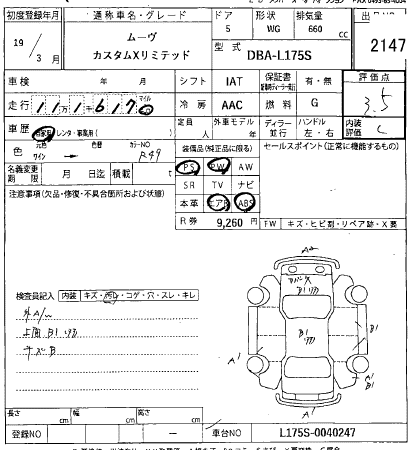 初度登録年月 通称車名・グレード ドア 形状 排気量
19 / 3 月 ムーヴ 5 WG 660 cc
カスタムXリミテッド 型式 DBA-L175S 2147
車検 年 月 シフト IAT 保証書 有・無 評価点
走行 11万1千617 マイル 冷房 AAC 燃料 G 3.5
車歴 自家用 レンタ・事業用 定員 人 外車モデル 年 ディーラー 並行 ハンドル 左・右 内装評価 C
色 元色 ワイン → 色替 カラーNO R49 装備品(純正品に限る) セールスポイント(正常に機能するもの)
名義変更期限 月 日迄 積載 PS PW AW
SR TV ナビ
注意事項(欠品・修復・不具合箇所および状態) 本革 エアB ABS
R券 9,260 円 FW キズ・ヒビ割・リペア跡・X要
A2
検査員記入 内装 キズ・汚れ・コゲ・穴・スレ・キレ
外A/u
上面B1
キズB
B1
B1
A1
A1
A1
B1
A1
長さ cm 幅 cm 高さ cm
登録NO ― 車台NO L175S-0040247